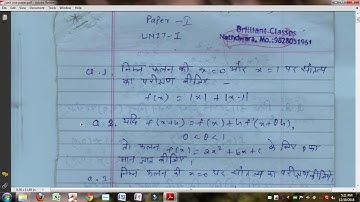 Paper - I
UNIT-I
Brilliant Classes
Nathdwara, Mo.:9828051961
Q.1. निम्न फलन की x=0 और x=1 पर सांतत्य
का परीक्षण कीजिए
f(x) = |x| + |x-1|
Q.2. यदि f(x+h) = f(x) + h f'(x+θh),
0<θ<1
तो फलन f(x) = ax² + bx + c के लिए θ का
मान ज्ञात कीजिए।
निम्न फलन की x=0 पर सांतत्य का परीक्षण कीजिए
5:01 PM
12/10/2018